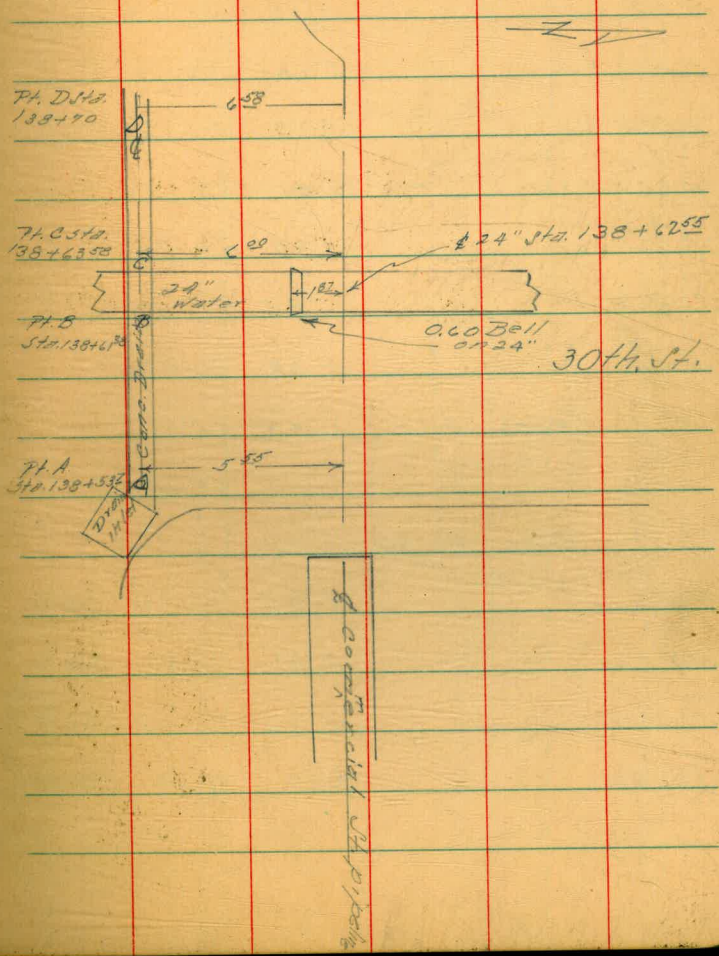 N
Pt. D Sta.
138+70
6 58
D
Pt. C Sta.
138+63 58
6 00
C
℄ 24" Sta. 138+62 55
24"
Water
1 87
Pt. B
Sta. 138+61 38
B
0.60 Bell
on 24"
30th. St.
Conc. Drain
Pt. A
Sta. 138+53
5 55
A
Drain
Inlet
℄ Commercial St. pipeline